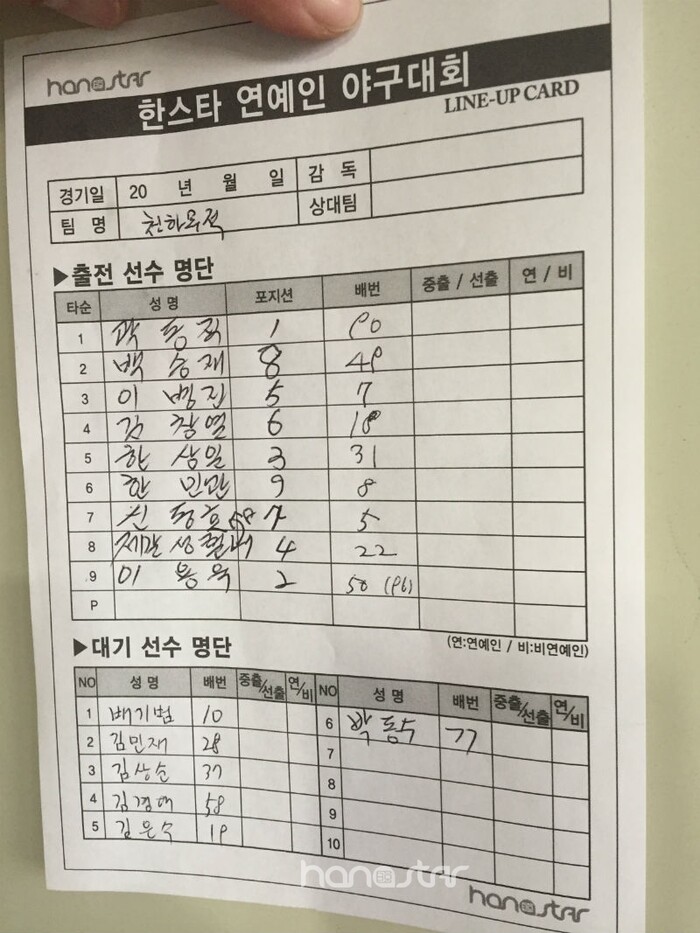 hanstar
한스타 연예인 야구대회
LINE-UP CARD
경기일 20 년 월 일 감 독
팀 명 천하무적 상대팀
▶출전 선수 명단
타순 성 명 포지션 배번 중출 / 선출 연 / 비
1 곽 동 직 1 90
2 백 승 재 8 49
3 이 병 진 5 7
4 김 창 열 6 18
5 한 상 일 3 31
6 한 민관 9 8
7 동 호 7 5
8 제갈 성 렬 4 22
9 이 용 욱 2 50 (96)
P
(연:연예인 / 비:비연예인)
▶대기 선수 명단
NO 성 명 배번 중출/선출 연/비 NO 성 명 배번 중출/선출 연/비
1 배기범 10 6 박 동수 77
2 김민재 28 7
3 김상순 37 8
4 58 9
5 김 은수 19 10
hanstar
hanstar